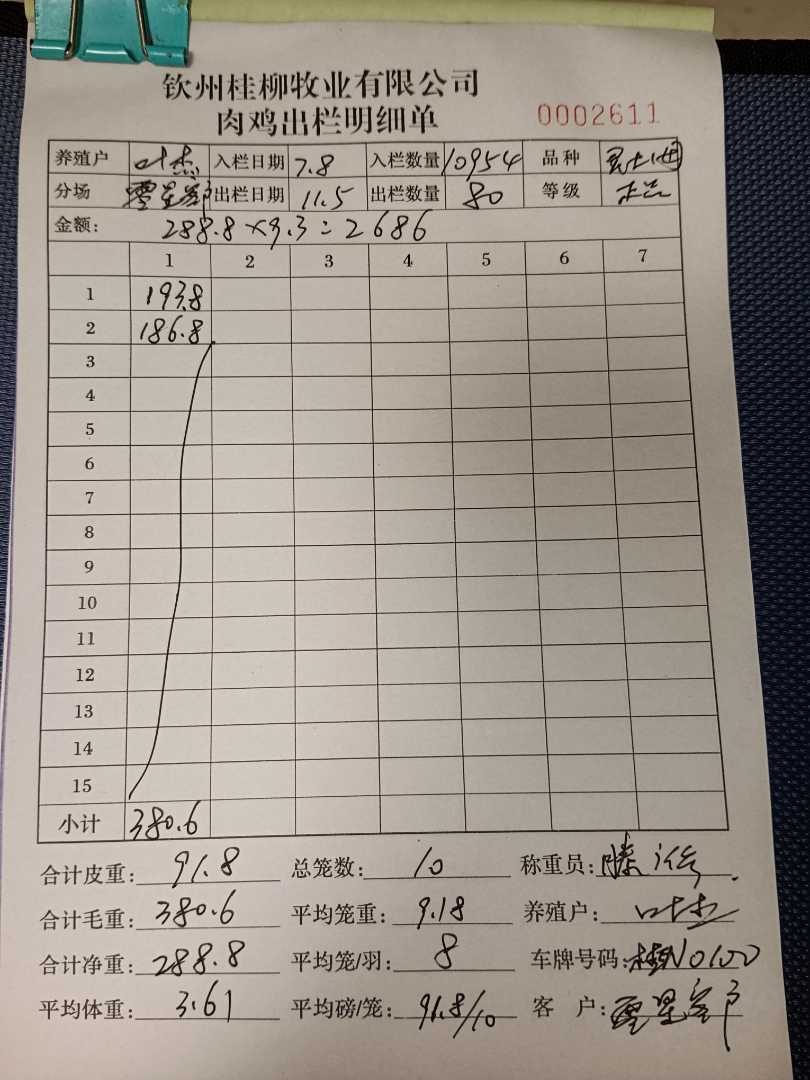 钦州桂柳牧业有限公司
肉鸡出栏明细单 0002611
养殖户 叶杰 入栏日期 7.8 入栏数量 10954 品种
分场 出栏日期 11.5 出栏数量 80 等级
金额: 288.8×9.3=2686
1 2 3 4 5 6 7
1 193.8
2 186.8
3
4
5
6
7
8
9
10
11
12
13
14
15
小计 380.6
合计皮重: 91.8 总笼数: 10 称重员: 滕
合计毛重: 380.6 平均笼重: 9.18 养殖户: 叶杰
合计净重: 288.8 平均笼/羽: 8 车牌号码: 桂N0100
平均体重: 3.61 平均磅/笼: 91.8/10 客 户: